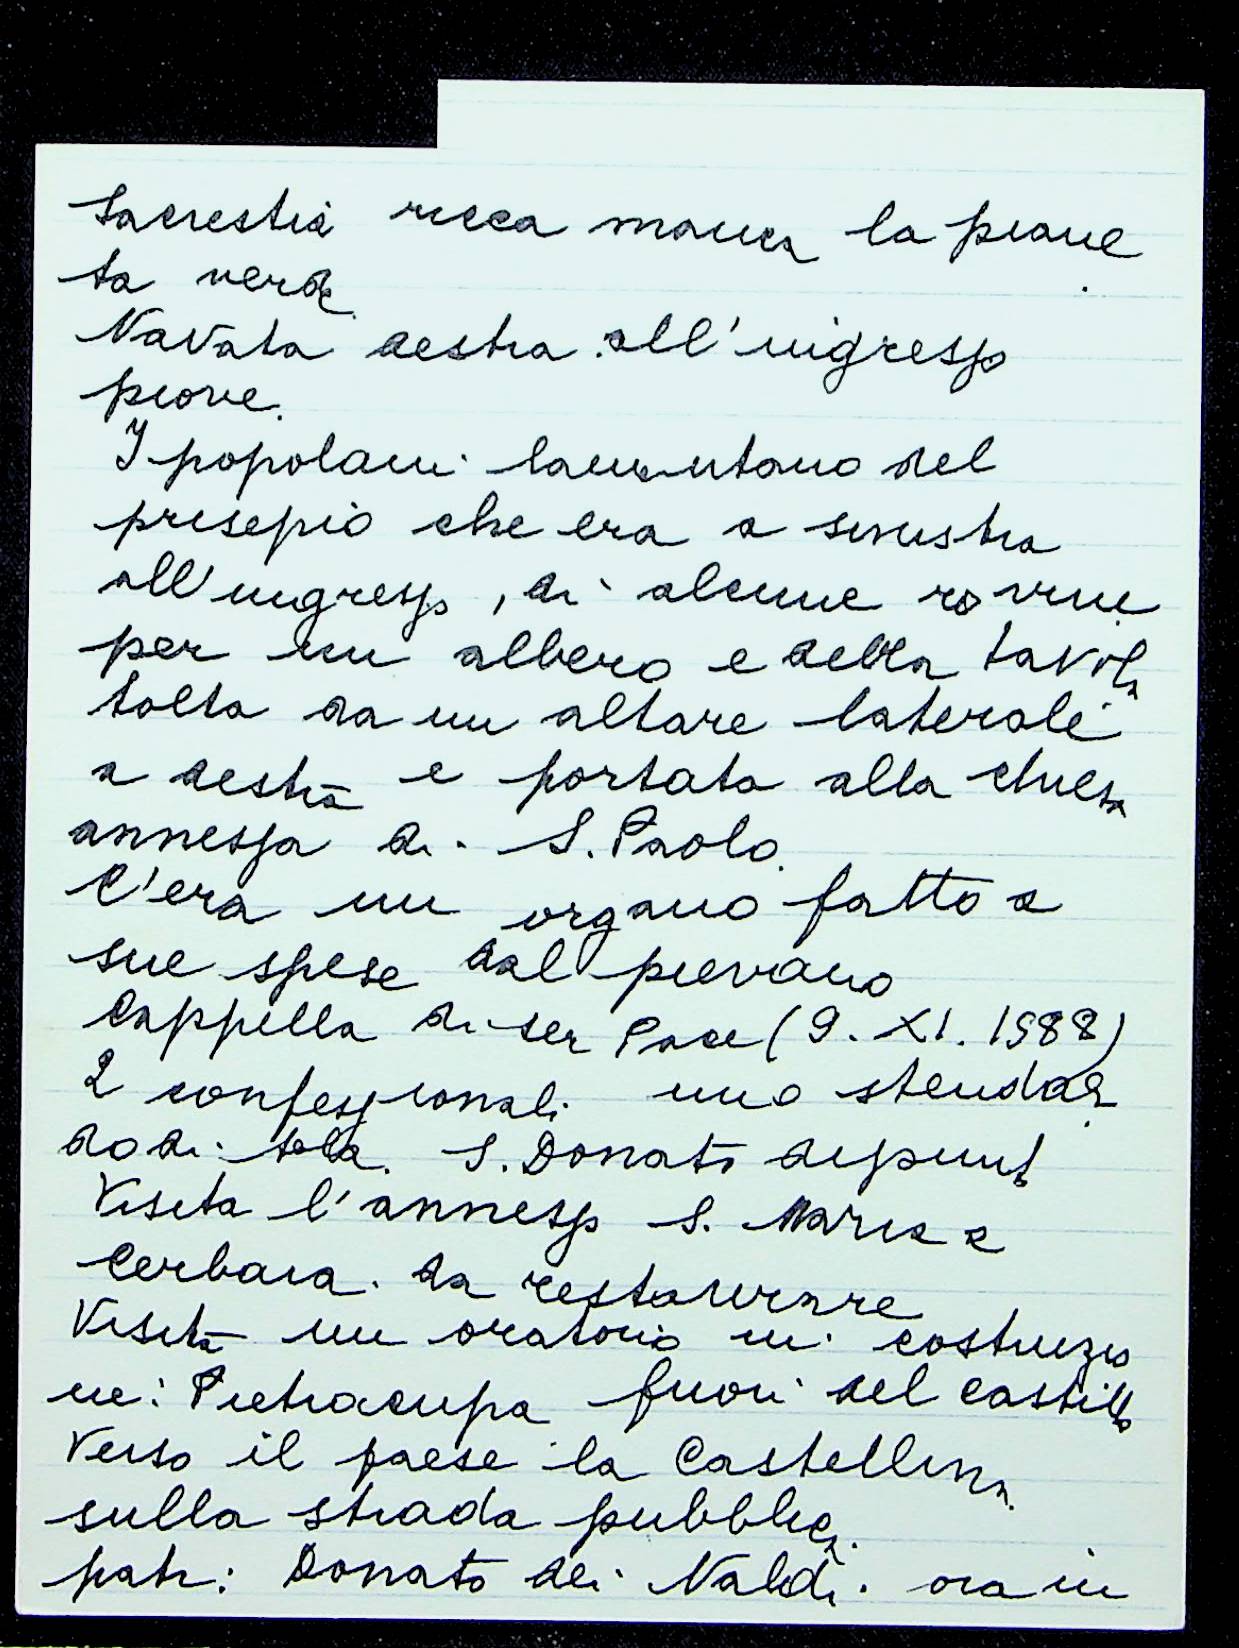 Sacrestia ricca manca la piane
ta verde.
Navata destra all'ingresso
piove.
I popolani lamentano del
presepio che era a sinistra
all'ingresso, di alcune rovine
per un albero e della tavola
tolta da un altare laterale
a destra e portata alla chiesa
annessa di S. Paolo.
C'era un organo fatto a
sue spese dal pievano
Cappella di ser Pace (9. XI. 1588)
2 confessionali uno stendar
do di tela. S. Donato dipinto
Visita l'annesso S. Maria a
Cerbaia. da restaurare
Visita un oratorio in costruzio
ne: Pietracupa fuori del castello
verso il paese la Castellina.
sulla strada pubblica.
patr: Donato dei Naldi. ora in